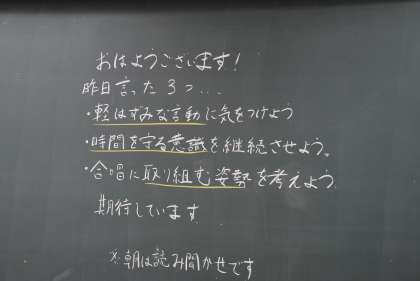 おはようございます!
昨日言った3つ...
・軽はずみな言動に気をつけよう
・時間を守る意識を継続させよう。
・合唱に取り組む姿勢を考えよう
期待しています
※朝は読み聞かせです